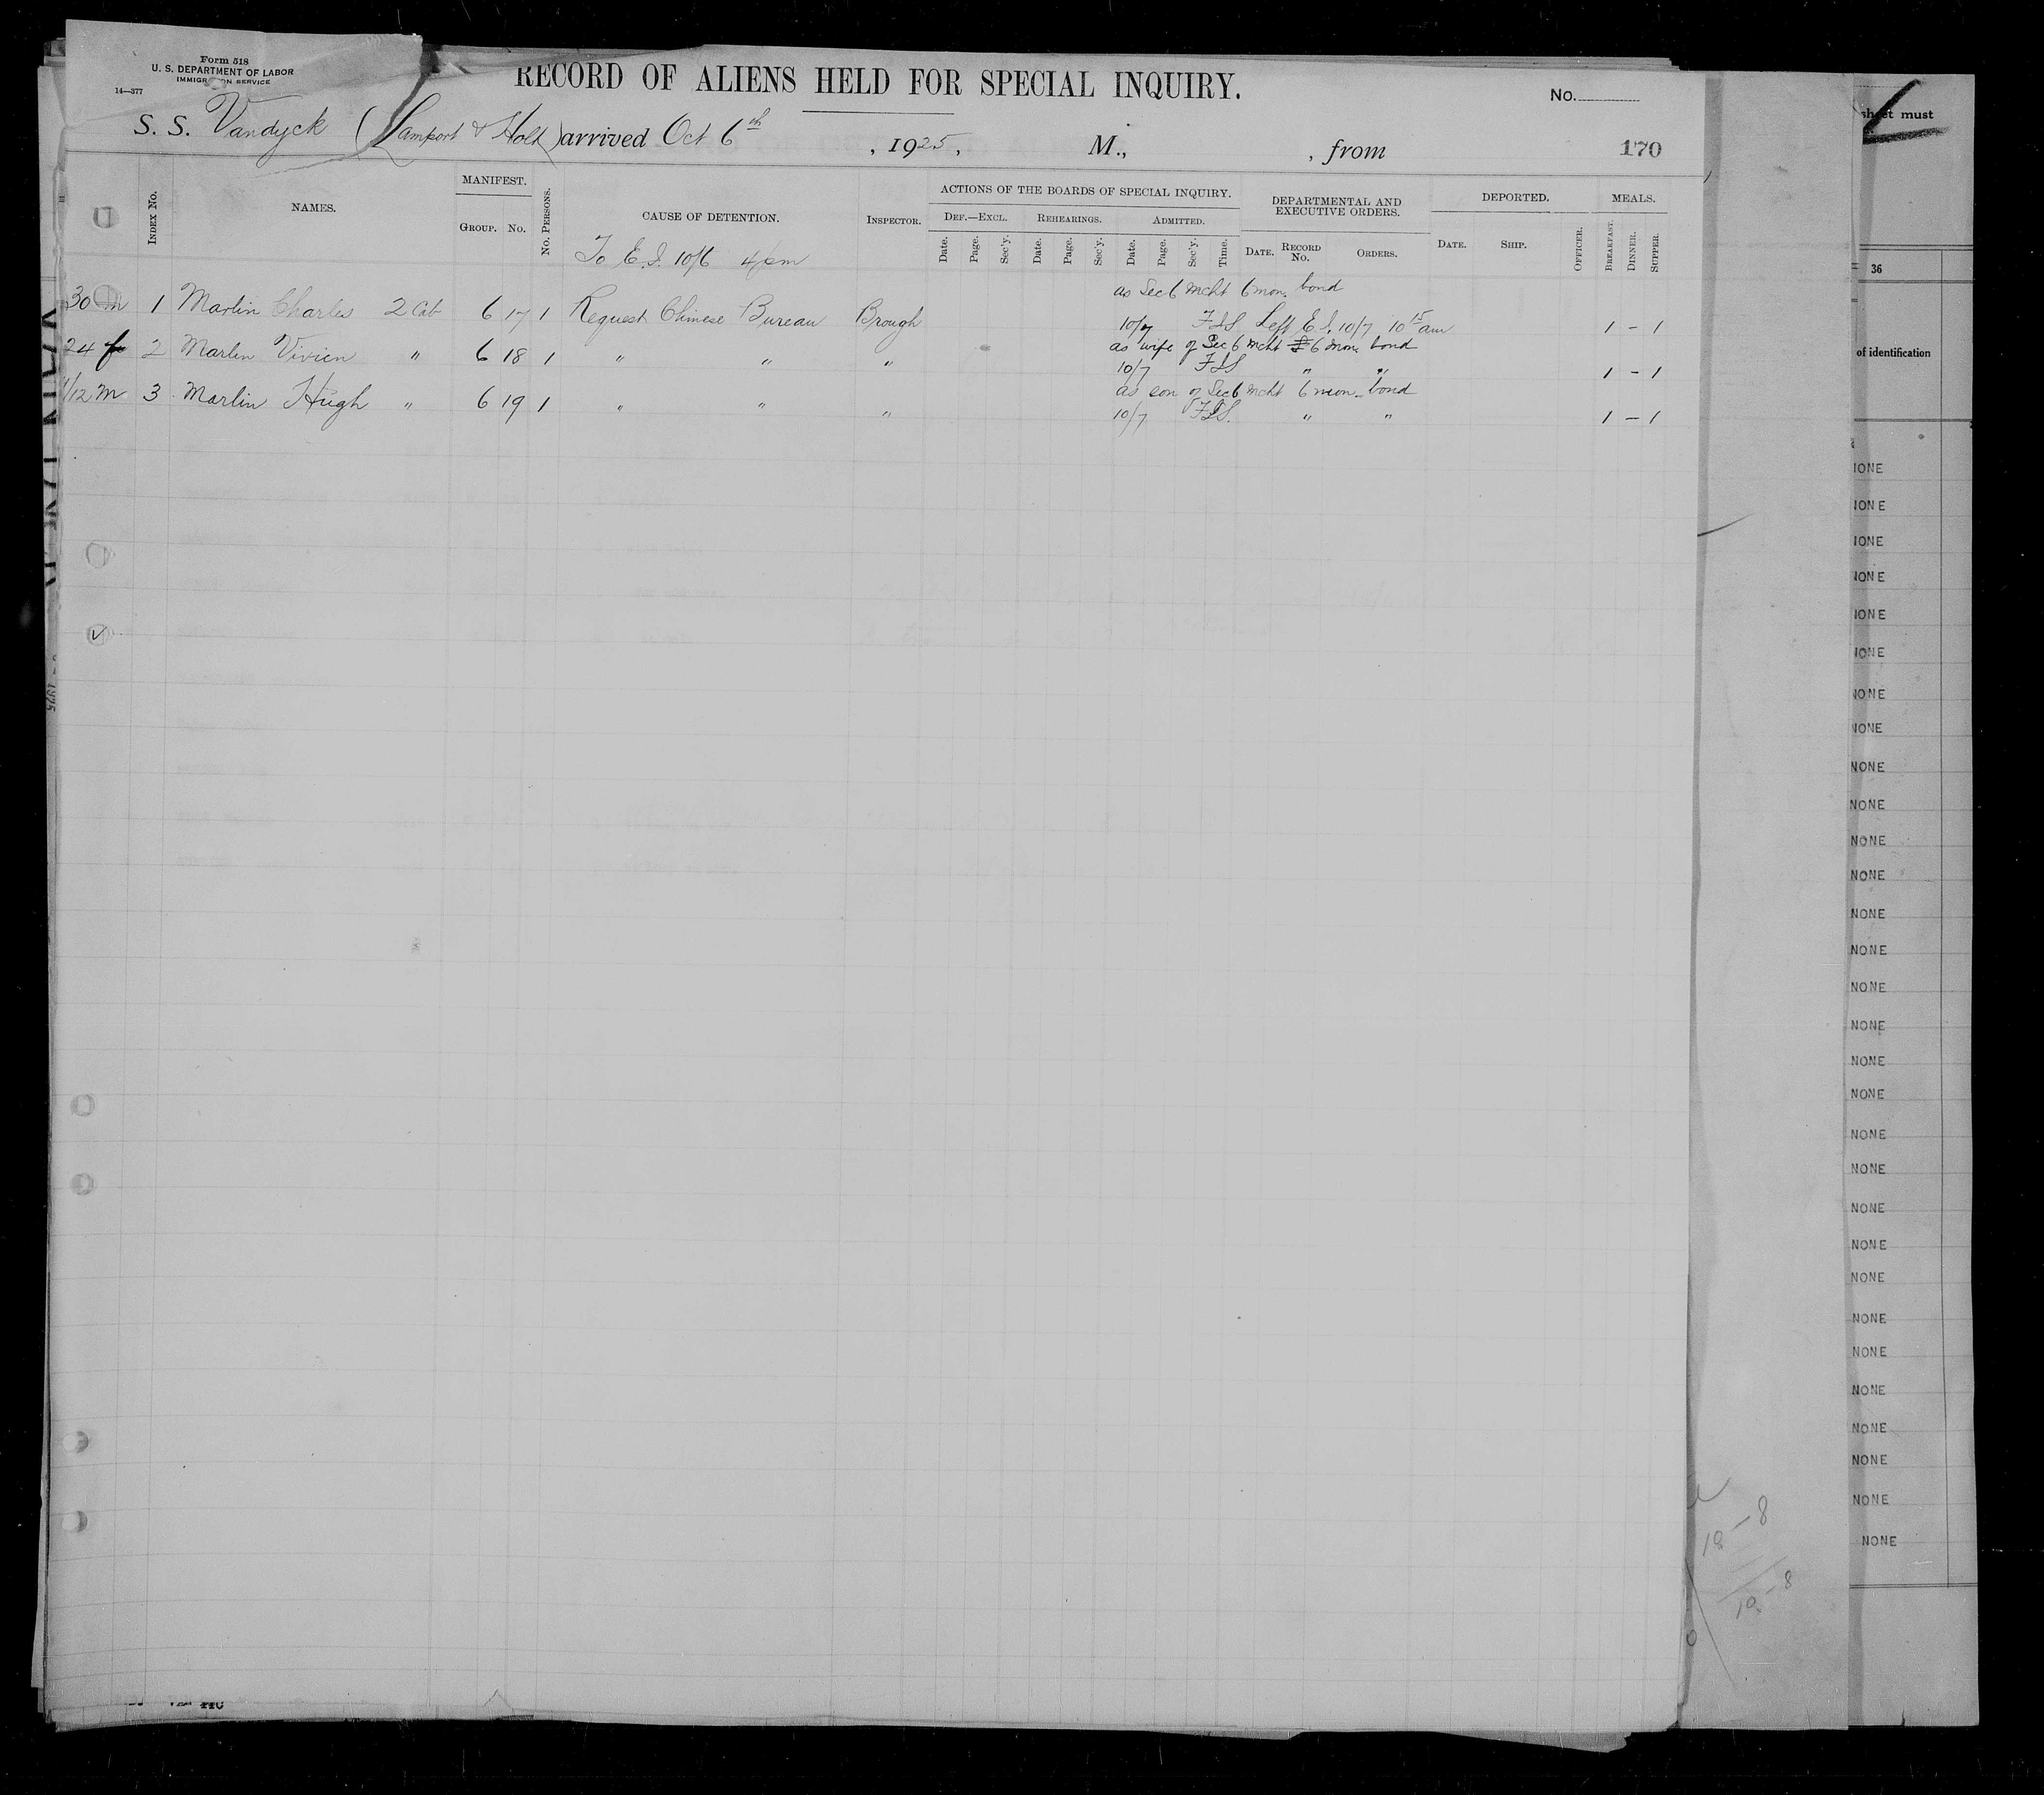 Form 518
U. S. DEPARTMENT OF LABOR
IMMIGRATION SERVICE
14—377
RECORD OF ALIENS HELD FOR SPECIAL INQUIRY.
No.
S. S. Vandyck (Lamport & Holt) arrived Oct 6th, 1925, M., , from
170
INDEX No.
NAMES.
MANIFEST.
GROUP. No.
No. PERSONS.
CAUSE OF DETENTION.
INSPECTOR.
ACTIONS OF THE BOARDS OF SPECIAL INQUIRY.
DEF.—EXCL. REHEARINGS. ADMITTED.
Date. Page. Sec'y. Date. Page. Sec'y. Date. Page. Sec'y. Time.
DEPARTMENTAL AND
EXECUTIVE ORDERS.
DATE. RECORD No. ORDERS.
DEPORTED.
DATE. SHIP. OFFICER.
MEALS.
BREAKFAST. DINNER. SUPPER.
To E.I. 10/6 4 pm
as Sec 6 mcht 6 mon. bond
30 m 1 Marlin Charles 2 Cab 6 17 1 Request Chinese Bureau Brough 10/7 FSS Left E.I. 10/7 10 15 am 1 - 1
as wife of Sec 6 mcht 6 mon. bond
24 f 2 Marlin Vivien " 6 18 1 " " " 10/7 FSS " " 1 - 1
as son of Sec 6 mcht 6 mon. bond
1/12 m 3 Marlin Hugh " 6 19 1 " " " 10/7 FSS. " " 1 - 1
sheet must
36
of identification
NONE
NONE
NONE
NONE
NONE
NONE
NONE
NONE
NONE
NONE
NONE
NONE
NONE
NONE
NONE
NONE
NONE
NONE
NONE
NONE
NONE
NONE
NONE
NONE
NONE
NONE
NONE
NONE
NONE
NONE